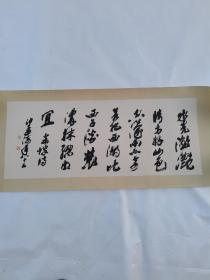 水光潋滟
晴方好山色
空濛雨亦奇
若把西湖比
西子淡妆
浓抹总相
宜 东坡诗